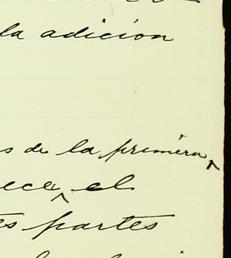 la adicion
s de la primera
ece el
es partes